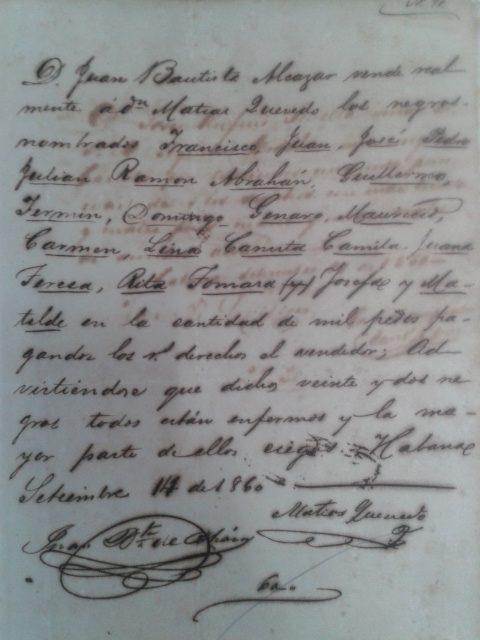 D. Juan Bautista Alcazar vende real
mente á dn Matias Quevedo los negros
nombrados Francisco, Juan, José Pedro
Julian Ramon Abrahán, Guillermo,
Fermin, Domingo Genaro, Mauricio,
Carmen, Lina Canuta Camila Juana
Teresa, Rita Tomara (y) Josefa y Ma-
tilde en la cantidad de mil pesos pa-
gandos los rs. derechos el vendedor; Ad
virtiendose que dichos veinte y dos ne
gros todos están enfermos y la ma-
yor parte de ellos ciegos Habana
Setiembre 14 de 1860
Matias Quevedo
Juan Bta. de